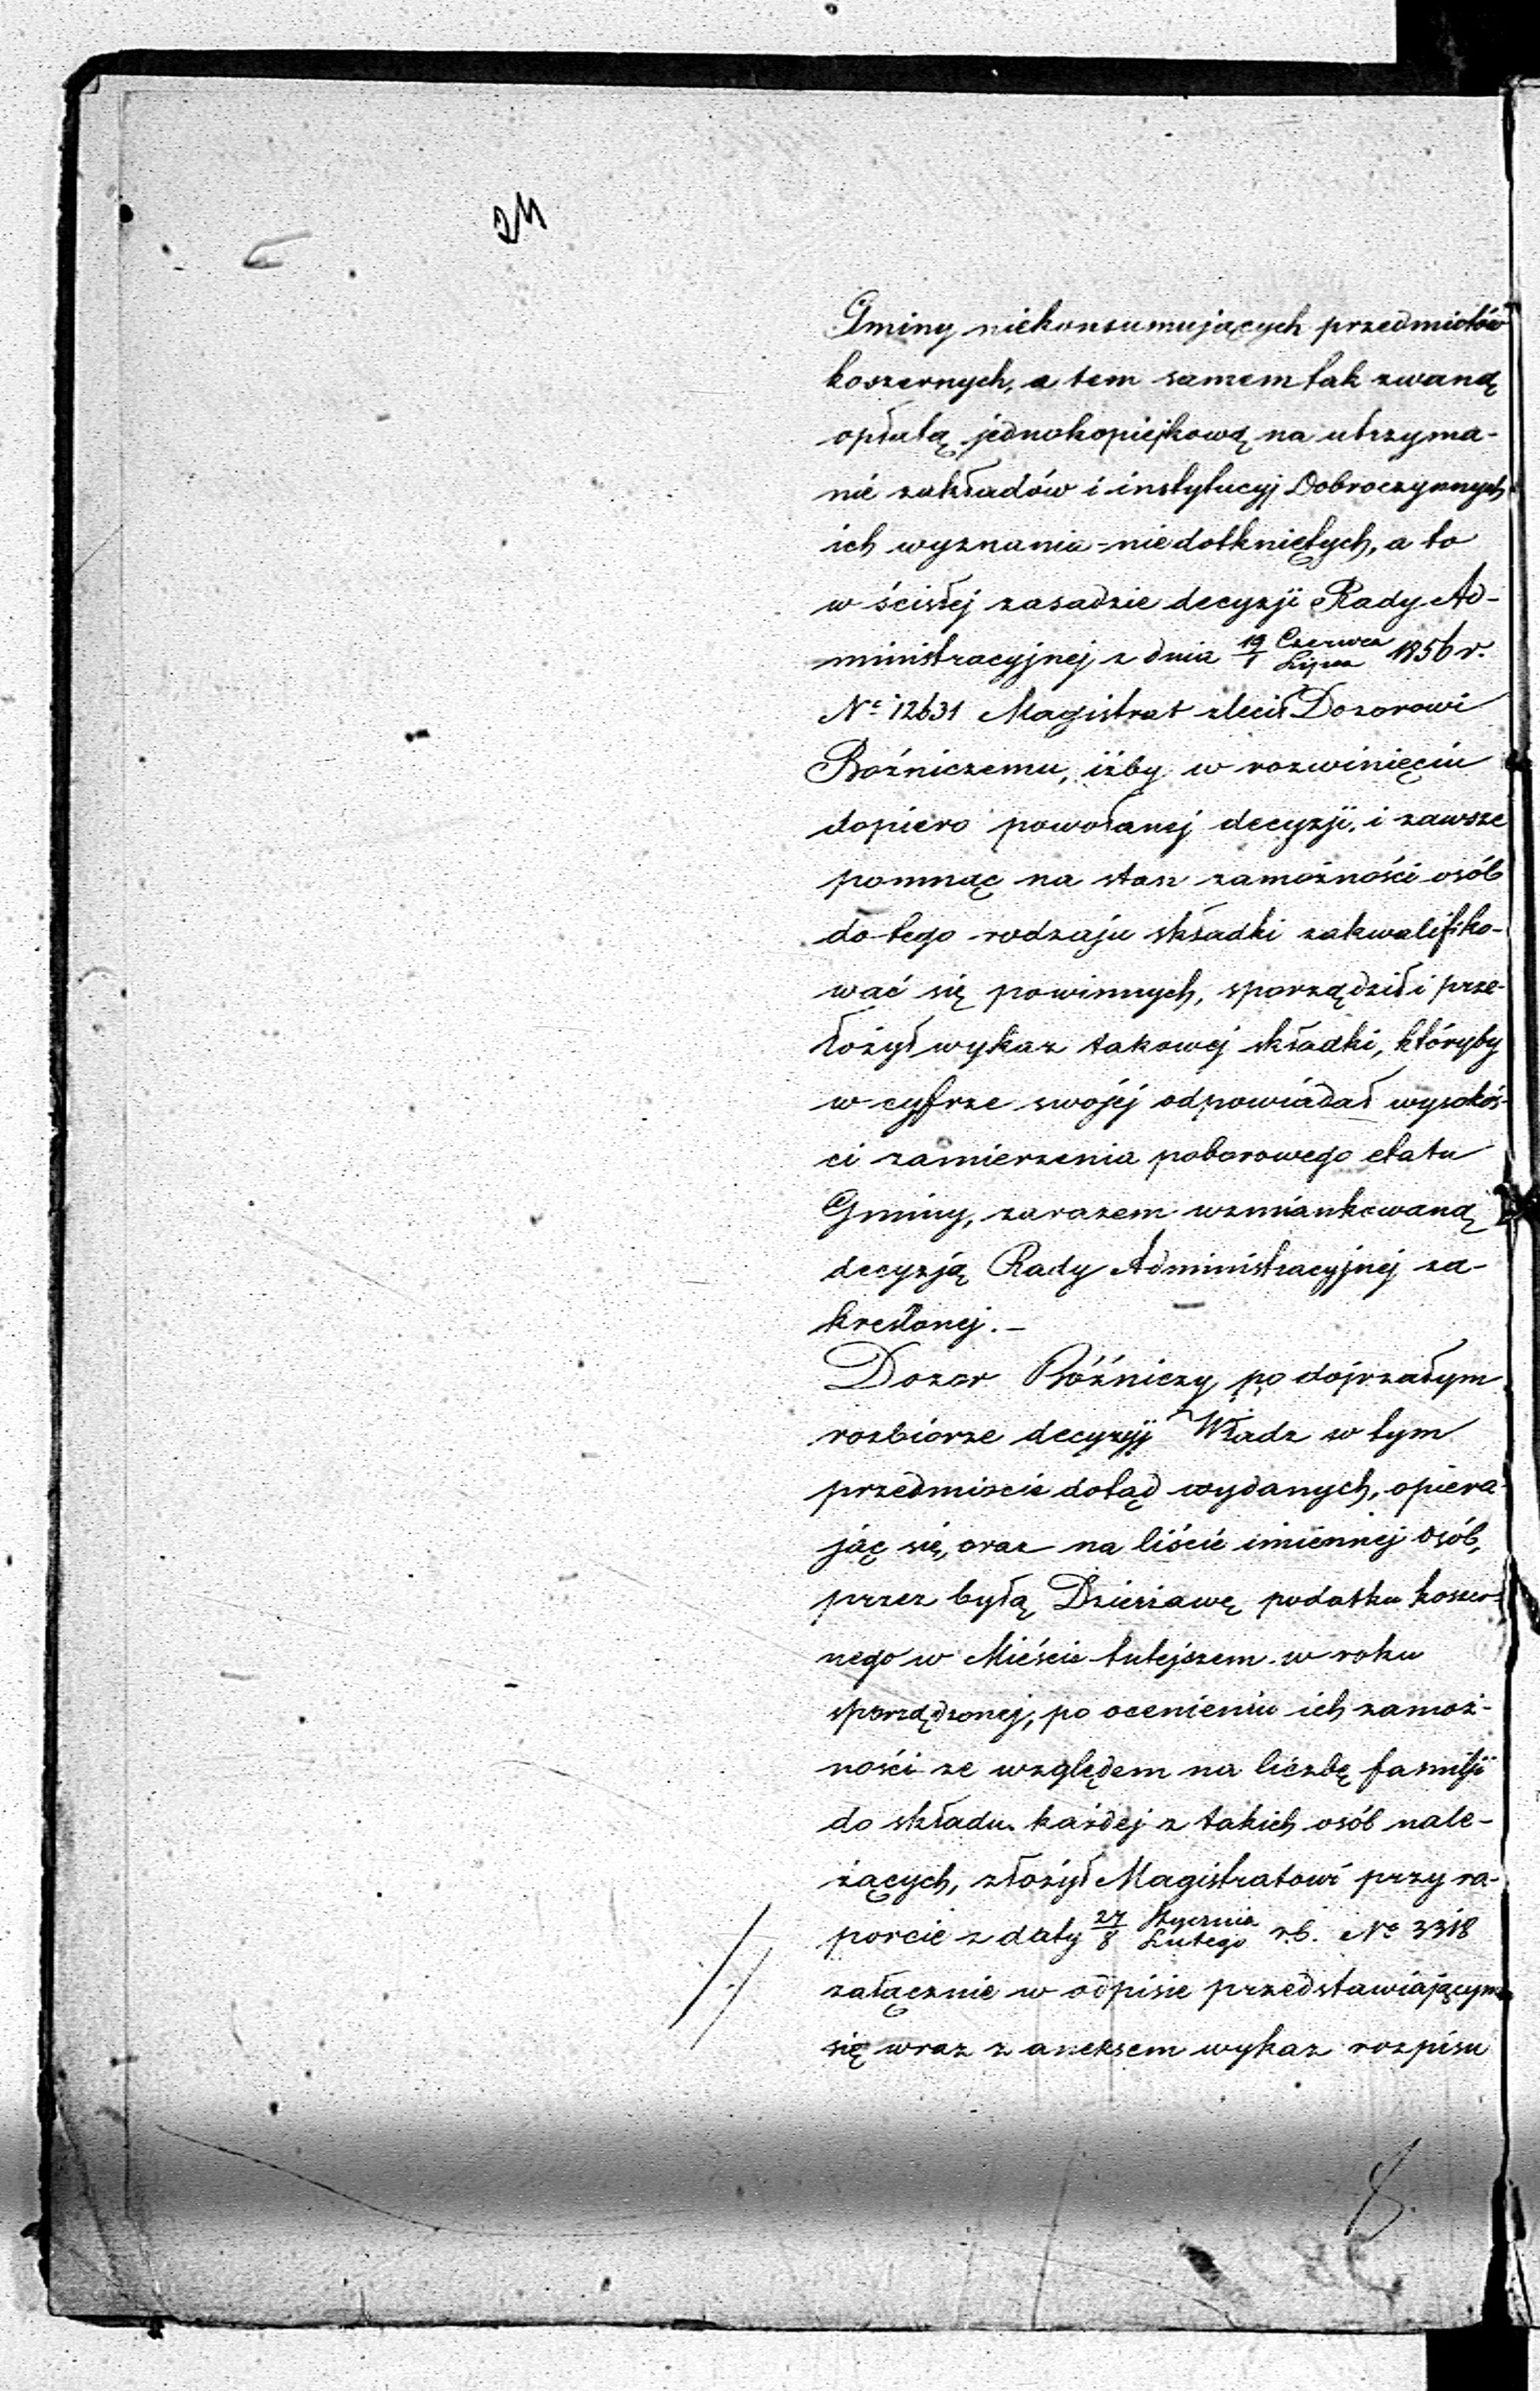 Gminy niekonsumujących przedmiotów
koszernych, a tem samem tak zwaną
opłatą jednokopiejkową na utrzyma-
nie zakładów i instytucyj Dobroczynnych
ich wyznania - niedotkniętych, a to
w ścisłej zasadzie decyzji Rady Ad-
ministracyjnej z dnia 19/1 Czerwca/Lipca 1856 r.
Nº 12631 Magistrat zlecił Dozorowi
Bożniczemu, iżby w rozwinięciu
dopiero powołanej decyzji, i zawsze
pomnąc na stan zamożności osób
do tego rodzaju składki zakwalifiko-
wać się powinnych, sporządził i prze-
łożył wykaz takowej składki, któryby
w cyfrze swojéj odpowiadał wysokoś-
ci zamierzenia poborowego etatu
Gminy, zarazem wzmiankowaną
decyzją Rady Administracyjnej za-
kreślonej. -
Dozor Bóżniczy po dojrzałym
rozbiorze decyzyj Władz w tym
przedmiocie dotąd wydanych, opiera-
jąc się, oraz na liście imiennej osób,
przez byłą Dzierżawę podatku koszer-
nego w Mieście tutejszem w roku
sporządzonej, po ocenieniu ich zamoż-
ności ze względem na liczbę familji
do składu każdej z takich osób nale-
żących, złożył Magistratowi przy ra-
porcie z daty 27/8 Stycznia/Lutego r.b. Nº 3318
załącznie w odpisie przedstawiającym
się wraz z aneksem wykaz rozpisu